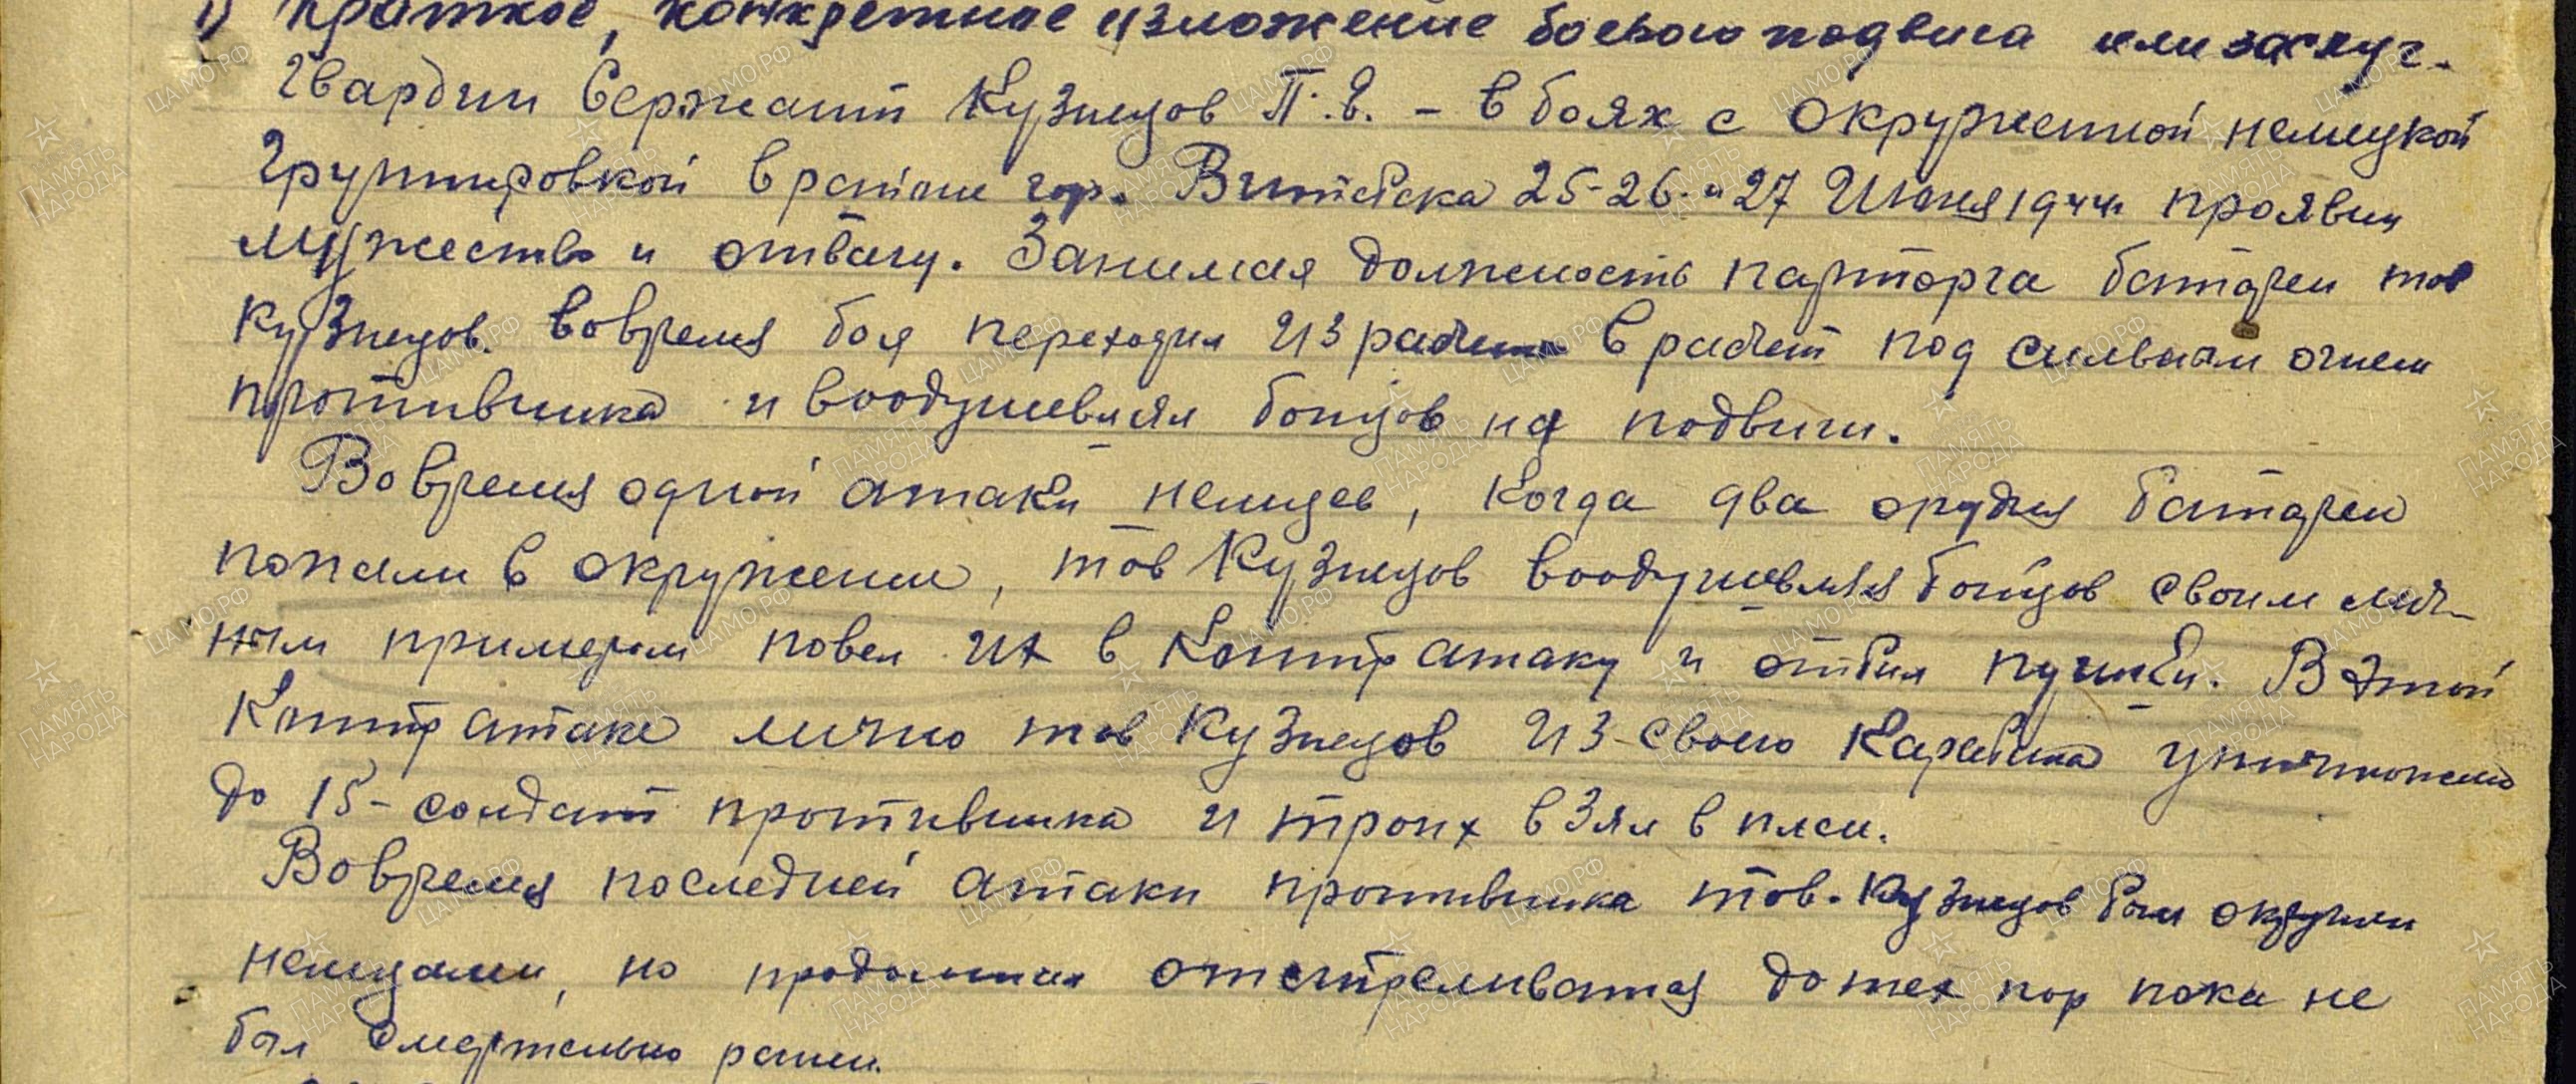 1) Краткое, конкретное изложение боевого подвига или заслуг.
Гвардии Сержант Кузнецов П.В. - в боях с окруженной немецкой
группировкой в районе гор. Витебска 25-26 и 27 Июня 1944г. проявил
мужество и отвагу. Занимая должность парторга батареи тов
Кузнецов. вовремя боя переходил из расчета в расчет под сильным огнем
противника и воодушевлял бойцов на подвиги.
Вовремя одной атаки немцев, когда два орудия батареи
попали в окружение, тов Кузнецов воодушевляя бойцов своим лич-
ным примером повел их в контратаку и отбил пушки. В этой
контратаке лично тов Кузнецов из своего карабина уничтожено
до 15- солдат противника и троих взял в плен.
Вовремя последней атаки противника тов. Кузнецов был окружен
немцами, но продолжал отстреливатся до тех пор пока не
был смертельно ранен.
ЦАМО РФ
ПАМЯТЬ НАРОДА